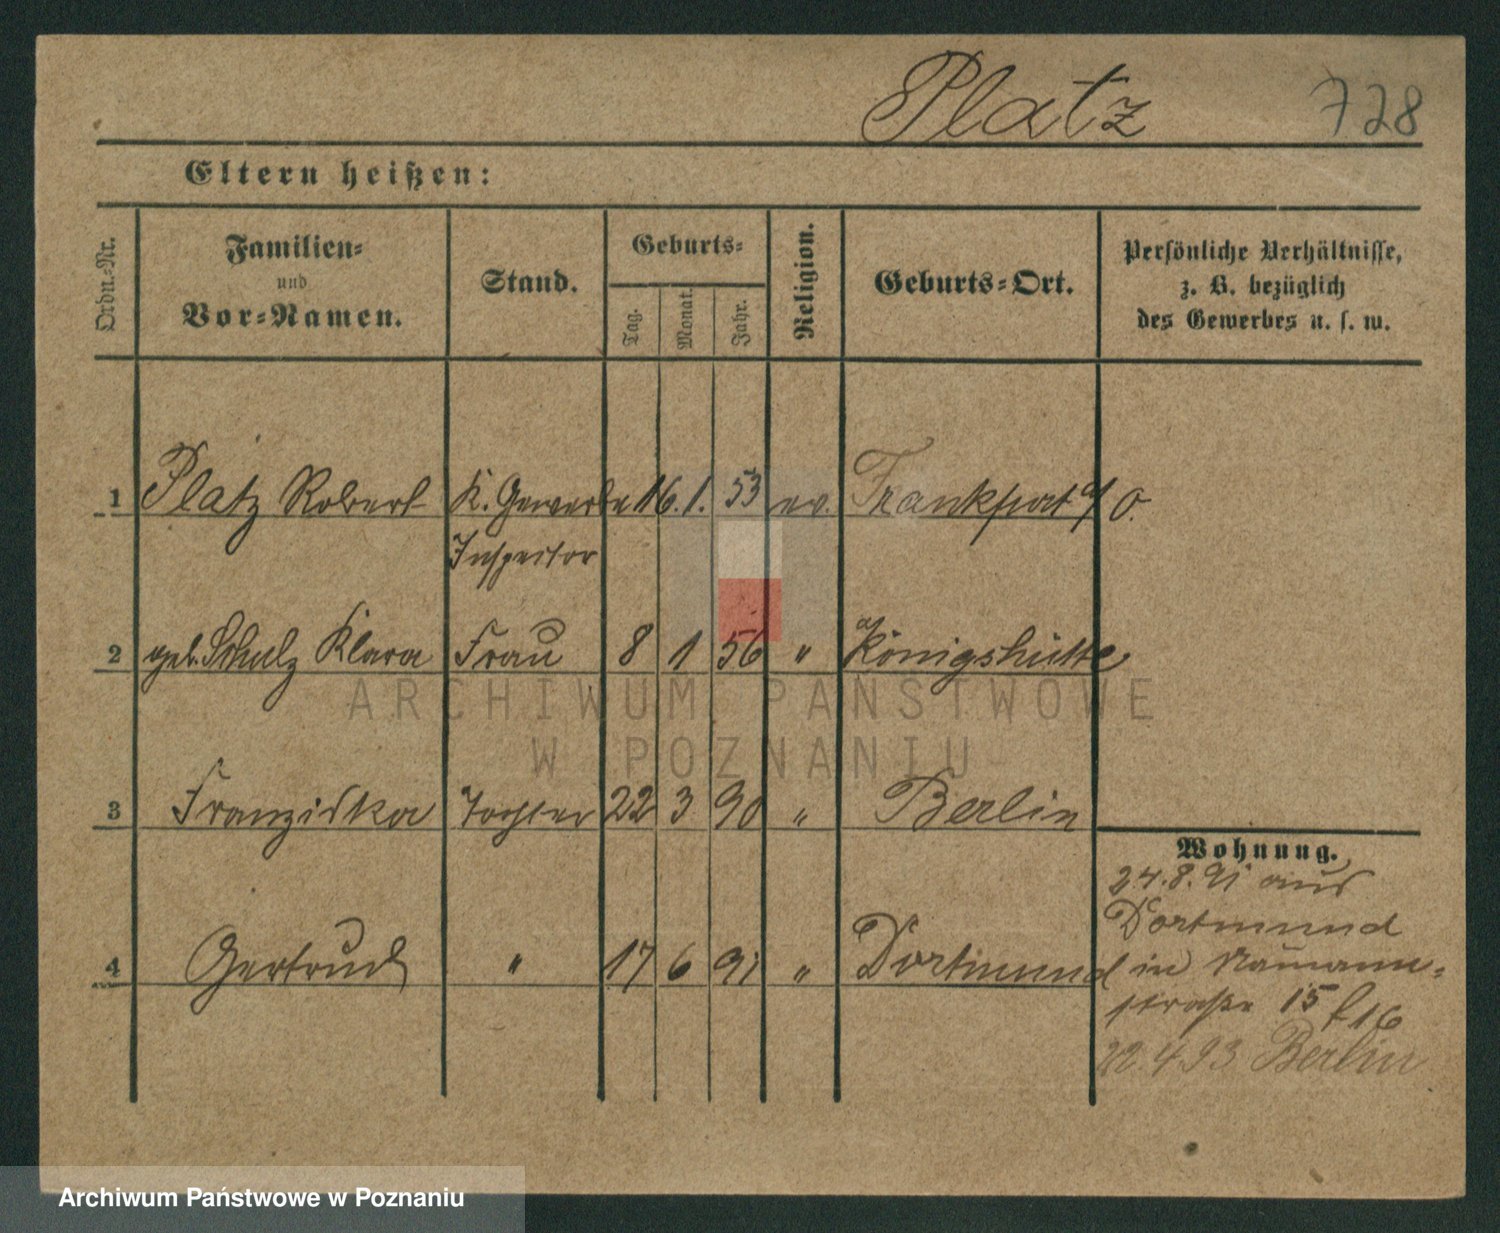 Platz 728
Eltern heißen:
Ordn.-Nr. Familien- und Vor-Namen. Stand. Geburts- Tag. Monat. Jahr. Religion. Geburts-Ort. Persönliche Verhältnisse, z. B. bezüglich des Gewerbes u. s. w.
1 Platz Robert K. Gewerbe 16. 1. 53 ev. Frankfurt a/O.
Inspector
2 geb. Schulz Klara Frau 8 1 56 " Königshütte
ARCHIWUM PAŃSTWOWE
W POZNANIU
3 Franziska Tochter 22 3 90 " Berlin
Wohnung.
24.8.91 aus
Dortmund
4 Gertrud " 17 6 91 " Dortmund
in Naumann-
straße 15 f 16
22.4.93 Berlin
Archiwum Państwowe w Poznaniu